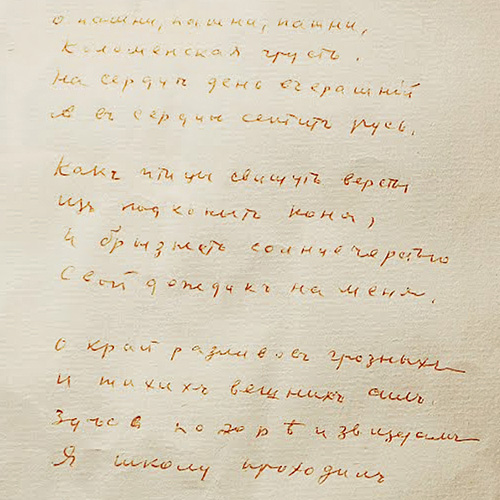 О пашни, пашни, пашни,
Коломенская грусть.
На сердце день вчерашній
А въ сердце светитъ Русь.
Какъ птицы свищутъ версты
Изъ подъ копытъ коня,
И брызжетъ солнце черство
Свой дождикъ на меня.
О край разливовъ грозныхъ
И тихихъ вешнихъ силъ.
Здѣсь по зарѣ и звѣздамъ
Я школу проходилъ